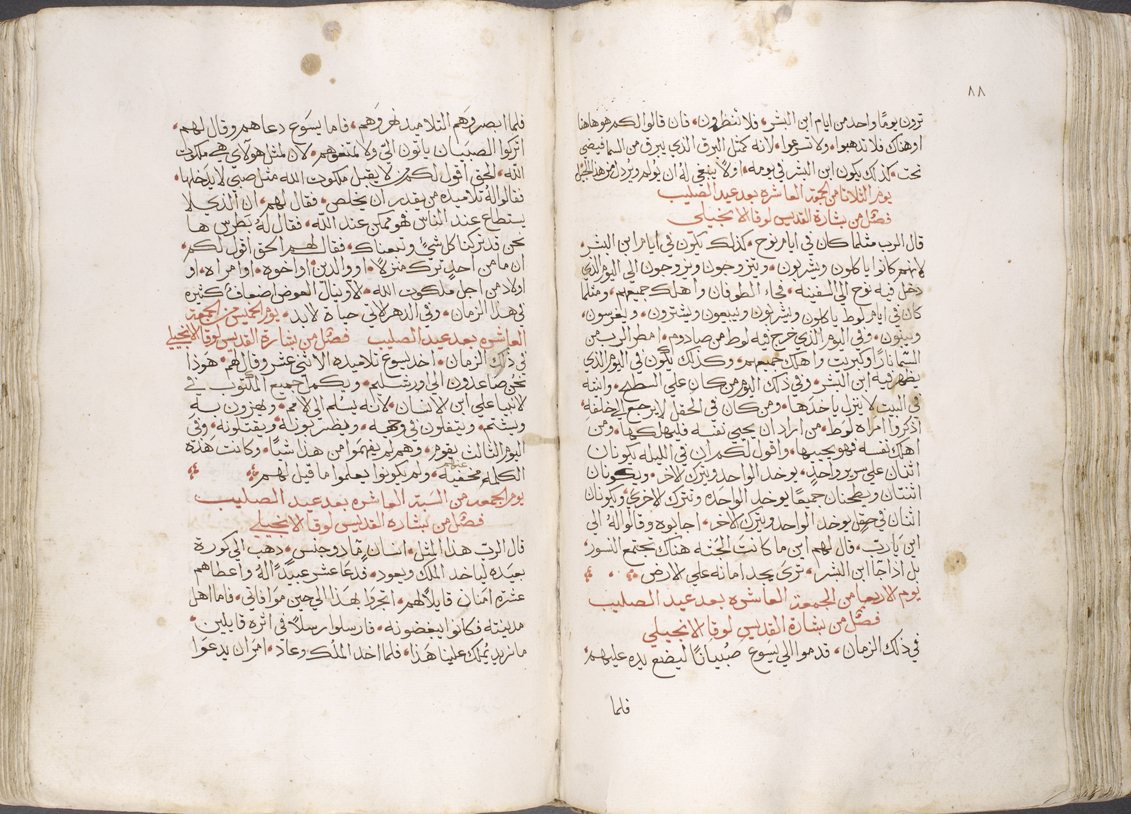 ٨٨
ترون يومًا واحد من ايام ابن البشر، فلا تنظرون، فان قالوا لكم هوهاهنا
او هناك فلا تذهبوا، ولا تسرعوا، لانه كمثل البرق الذي يبرق من السما فيضي
تحت، كذلك يكون ابن البشر في يومه، اولاً ينبغي له ان يولم ويرذل من هذا الجيل
يوم الثلاثا من الجمعة العاشره بعد عيد الصليب
فصل من بشارة القديس لوقا الانجيلي
قال الرب مثلما كان في ايام نوح، كذلك يكون في ايام ابن البشر،
لانهم كانوا ياكلون ويشربون، ويتزوجون ويزوجون الى اليوم الذي
دخل فيه نوح الى السفينه، فجاء الطوفان واهلك جميعهم، ومثلما
كان في ايام لوط ياكلون ويشربون ويبيعون ويشترون، ويغرسون
ويبنون، وفي اليوم الذي خرج فيه لوط من صادوم، امطر الرب من
السما نارًا وكبريت واهلك جميعهم، وكذلك يكون في اليوم الذي
يظهر فيه ابن البشر، وفي ذلك اليوم من كان علي السطح، وانيته
في البيت لا ينزل ياخذها، ومن كان في الحقل لا يرجع الى خلفه
اذكروا امراة لوط، من اراد ان يحيي نفسه فليهلكها، ومن
اهلك نفسه فهو يحييها، واقول لكم ان في الليله يكونان
اثنان علي سرير واحدٍ، يوخد الواحد ويترك الاخر، ويكونان
اثنتان ويطحنان جميعًا يوخد الواحده وتترك الاخري، ويكونان
اثنان في حقلٍ يوخد الواحد ويترك الاخر، اجابوه وقالوا له الي
اين يارب، قال لهم اين ما كانت الجثه هناك تجتمع النسور
بل اذا جا ابن البشر، ترى يجد امانه علي الارض
يوم الاربعا من الجمعة العاشره بعد عيد الصليب
فصل من بشارة القديس لوقا الانجيلي
في ذلك الزمان، قدموا الي يسوع صُبيانًا ليضع يده عليهم،
فلما
فلما ابصروهم التلاميذ نهروهم، فاما يسوع دعاهم وقال لهم،
اتركوا الصبيان ياتون الي ولا تمنعوهم، لان لمثل هولاي هي ملكوت
الله، الحق اقول لكم من لا يقبل ملكوت الله مثل صبي لا يدخلها،
فقالوا له تلاميذه من يقدر ان يخلص، فقال لهم، ان الذي لا
يستطاع عند الناس هو ممكن عند الله، فقال له بطرس ها
نحن قد تركنا كل شيءٍ وتبعناك، فقال لهم الحق اقول لكم،
ان ما من احدٍ ترك منزلاً، او والدين، او اخوه، او امراه، او
اولاد من اجل ملكوت الله، الا وينال العوض اضعاف كثيره
في هذا الزمان، وفي الدهر الاتي حياة الابد، يوم الخميس من الجمعة
العاشره بعد عيد الصليب فصل من بشارة القديس لوقا الانجيلي
في ذلك الزمان، اخد يسوع تلاميذه الاثني عشر وقال لهم، هوذا
نحن صاعدون الى اورشليم، ويكمل جميع المكتوب في
الانبيا على ابن الانسان، لانه يسلم الى الامم، ويهزون به
ويشتم، ويتفلون في وجهه، ويضربونه، ويقتلونه، وفي
اليوم الثالث يقوم، وهم لم يفهموا من هذا شيًا، وكانت هذه
الكلمه مخفيه عنهم، ولم يكونوا يعلموا ما قيل لهم،
يوم الجمعه من السبة العاشره بعد عيد الصليب
فصل من بشارة القديس لوقا الانجيلي
قال الرب هذا المثل، انسان قاد وجنس، دهب الى كورة
بعيده لياخد الملك ويعود، فدعا عشر عبيدًا له واعطاهم
عشرة امنان قايلاً لهم، اتجروا بهذا الي حين موافاتي، فاما اهل
مدينته فكانوا يبغضونه، فارسلوا رسلاً في اثره قايلين،
ما نريد يملك علينا هذا، فلما اخد الملك وعاد، امر ان يدعوا